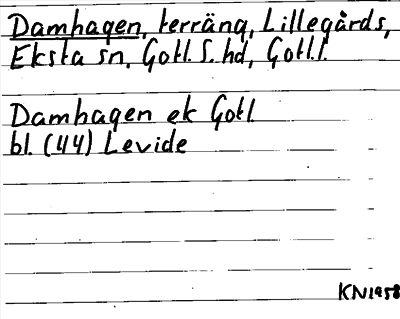 Damhagen, terräng, Lillegårds,
Eksta sn, Gotl. S. hd, Gotl.l.
Damhagen ek Gotl
bl. (44) Levide
KN1958